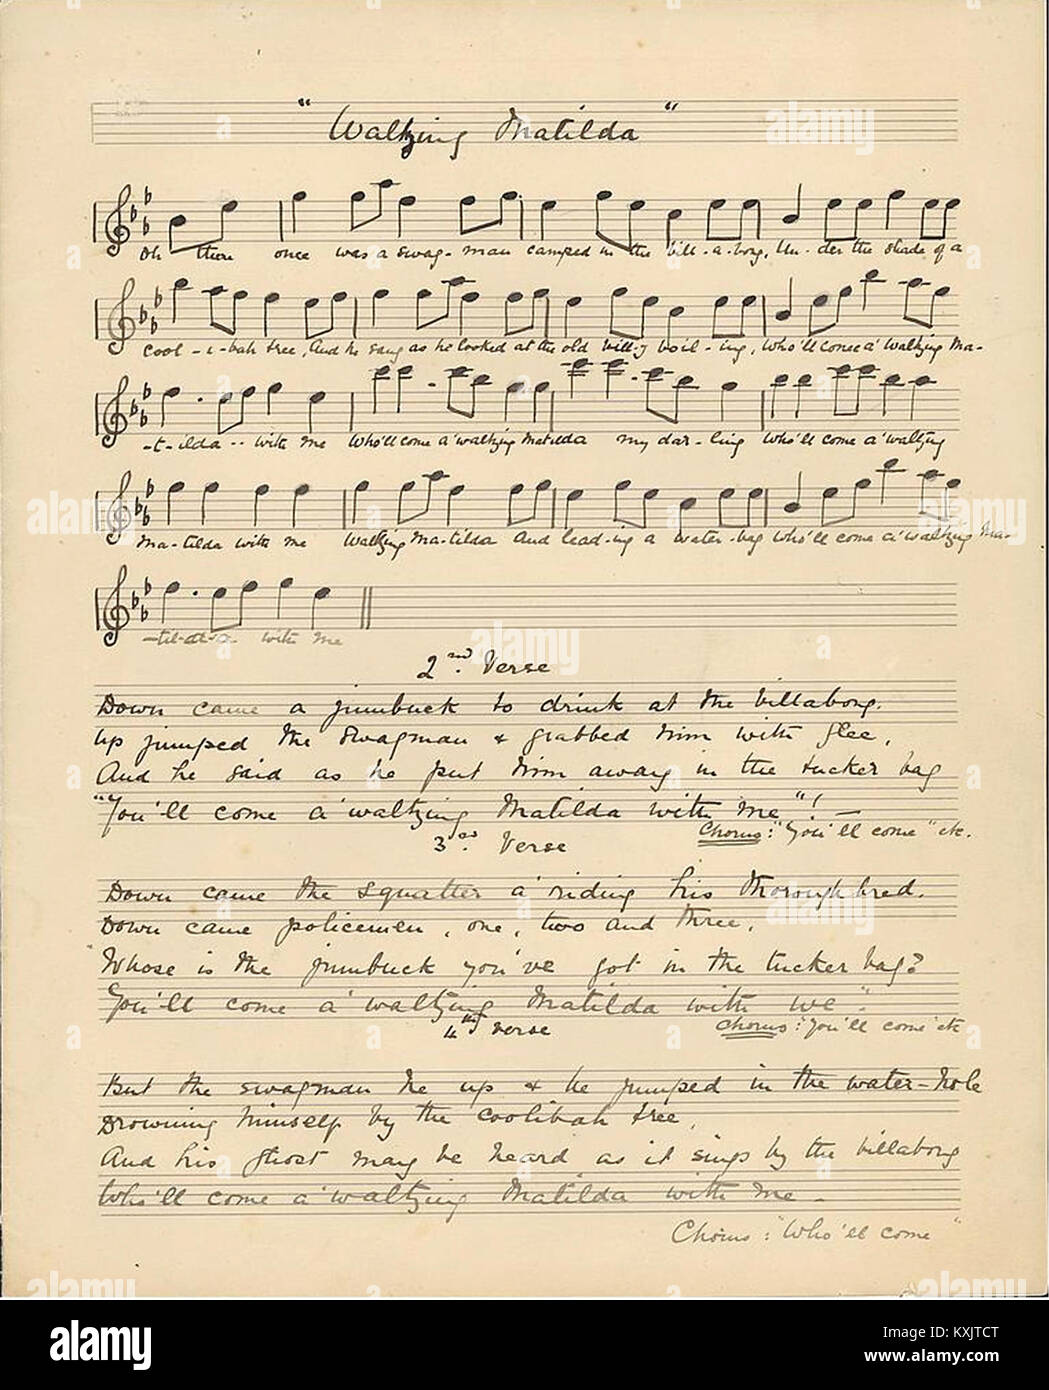 "Waltzing Matilda"
Oh there once was a swag-man camped in the bill-a-bong, Un-der the shade of a
cool-i-bah tree, And he sang as he looked at the old billy boil-ing, Who'll come a' waltzing Ma-
-t-ilda -- with me Who'll come a' waltzing Matilda my dar-ling Who'll come a' waltzing
Ma-tilda with me Waltzing Ma-tilda And lead-ing a water-bag Who'll come a' waltzing Ma-
with me
2nd. Verse
Down came a jumbuck to drink at the billabong.
Up jumped the swagman & grabbed him with glee,
And he said as he put him away in the tucker bag
"You'll come a' waltzing Matilda with me"! —
Chorus: "You'll come" etc.
3rd. Verse
Down came the squatter a' riding his thoroughbred.
Down came policemen, one, two and three.
Whose is the jumbuck you've got in the tucker bag?
You'll come a' waltzing Matilda with we".
Chorus: "You'll come" etc
4th verse
But the swagman he up & he jumped in the water-hole
Drowning himself by the coolibah tree,
And his ghost may be heard as it sings by the billabong
Who'll come a' waltzing Matilda with me -
Chorus: "Who'll come"
alamy
a
alamy
Image ID: KXJTCT
www.alamy.com